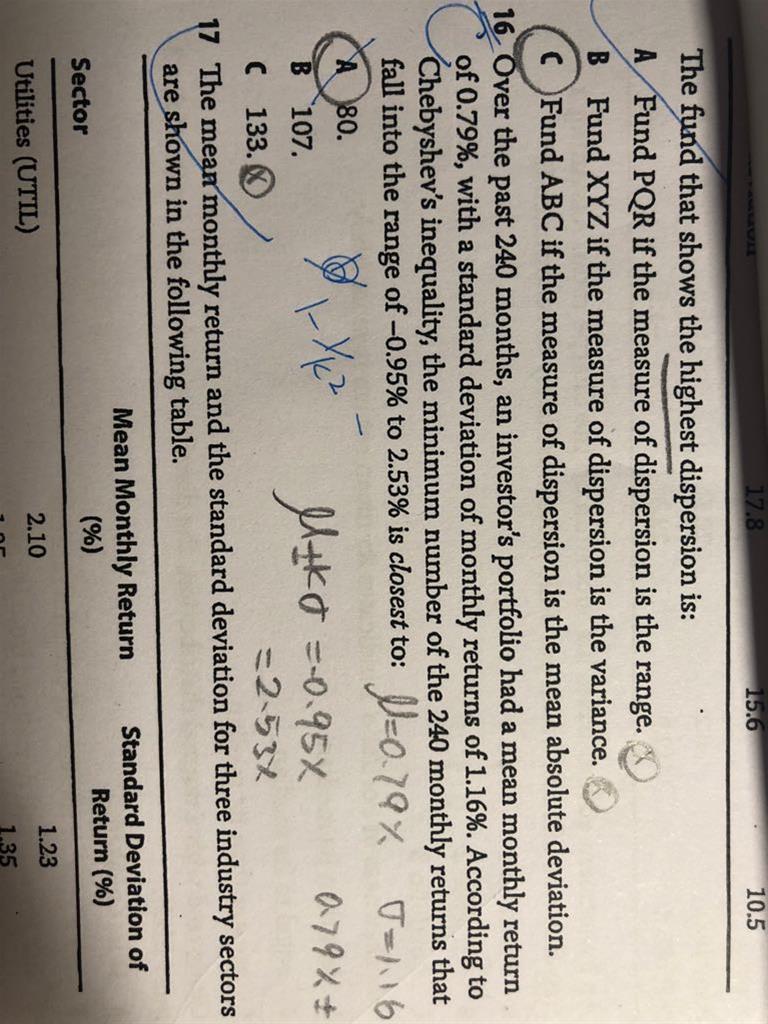 17.8 15.6 10.5
The fund that shows the highest dispersion is:
A Fund PQR if the measure of dispersion is the range.
B Fund XYZ if the measure of dispersion is the variance.
C Fund ABC if the measure of dispersion is the mean absolute deviation.
16 Over the past 240 months, an investor's portfolio had a mean monthly return
of 0.79%, with a standard deviation of monthly returns of 1.16%. According to
Chebyshev's inequality, the minimum number of the 240 monthly returns that
fall into the range of −0.95% to 2.53% is closest to: μ=0.79% σ=1.16
A 80.
B 107.
C 133.
1-1/k² -
μ±kσ = -0.95% 0.79% ±
= 2.53%
17 The mean monthly return and the standard deviation for three industry sectors
are shown in the following table.
Sector
Mean Monthly Return
(%)
Standard Deviation of
Return (%)
Utilities (UTIL) 2.10 1.23
1.35